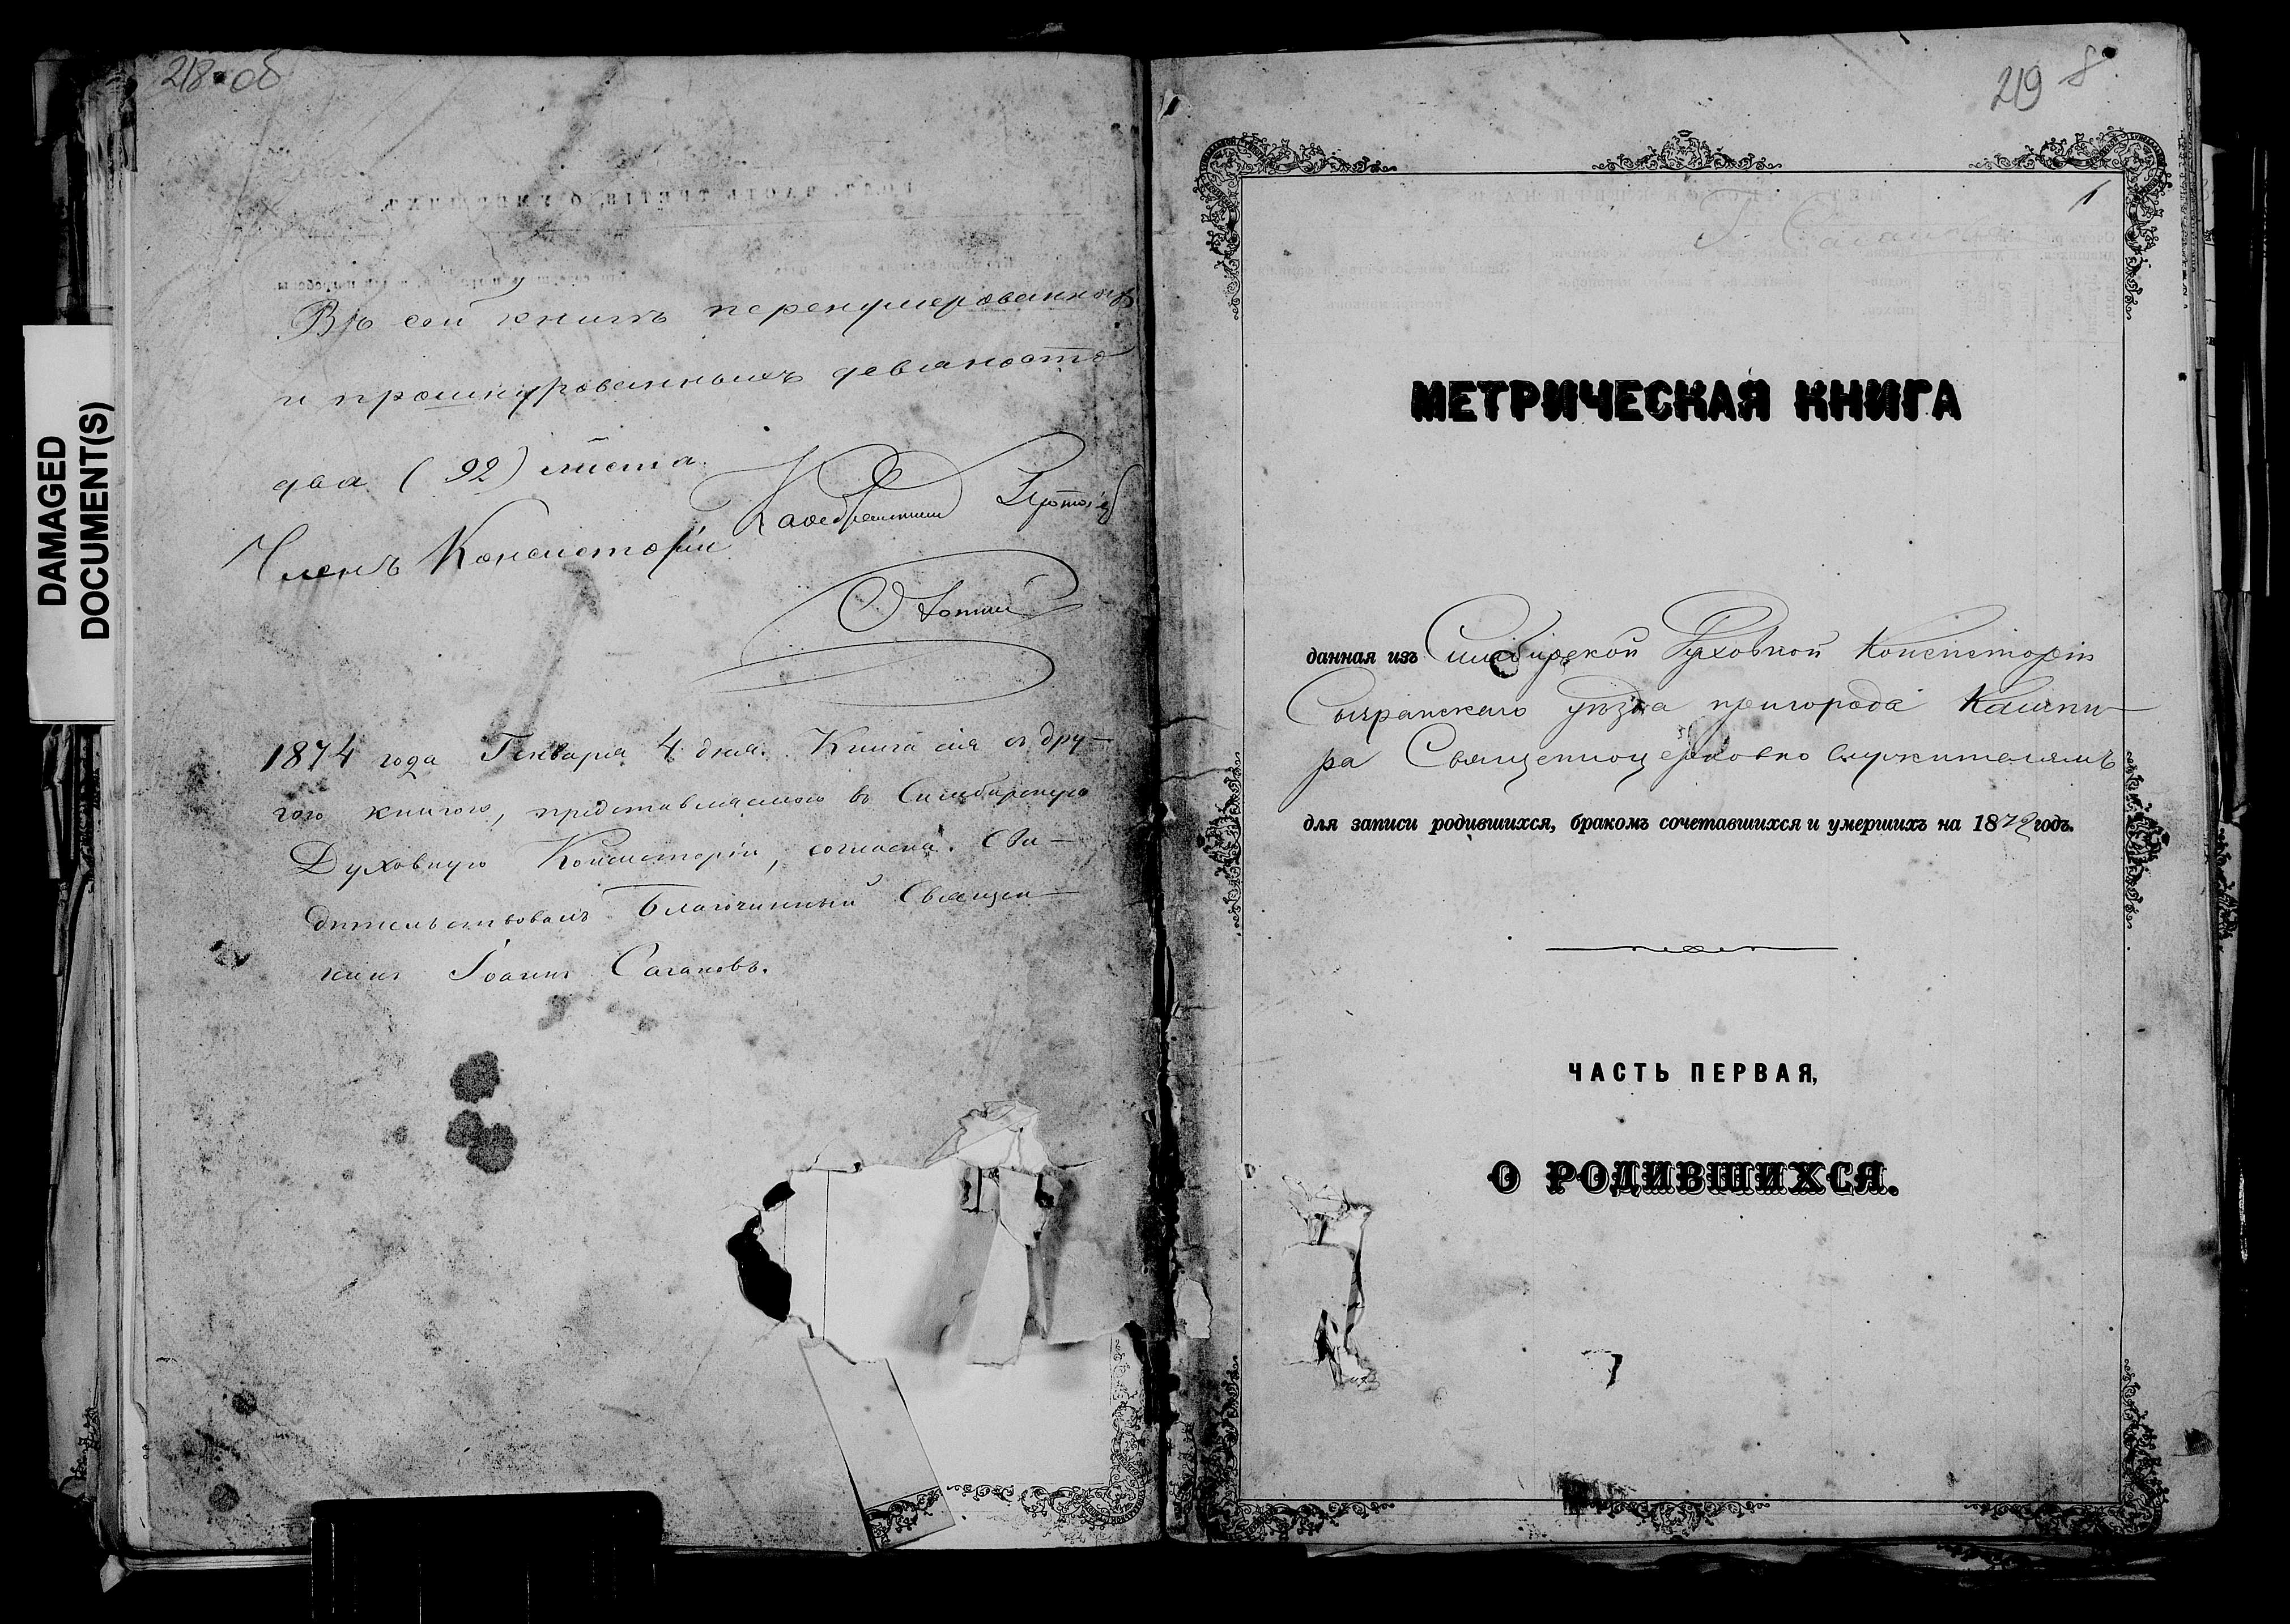 218 об
Въ сей книгѣ перенумерованныхъ
и прошнурованныхъ девяносто
два (92) листа.
Членъ Консисторіи Каѳедральный
1874 года Генваря 4 дня. Книга сія съ дру-
гою книгою, представляемою въ Симбирскую
Духовную Консисторію, согласна. Сви-
дѣтельствовалъ Благочинный Священ-
никъ Іоаннъ Сагановъ.
DAMAGED
DOCUMENT(S)
219 8
1
МЕТРИЧЕСКАЯ КНИГА
данная изъ Симбирской Духовной Консисторіи
Сызранскаго уѣзда пригорода Кашпи-
ра Священноцерковно служителямъ
для записи родившихся, бракомъ сочетавшихся и умершихъ на 1872 годъ.
ЧАСТЬ ПЕРВАЯ,
О РОДИВШИХСЯ.